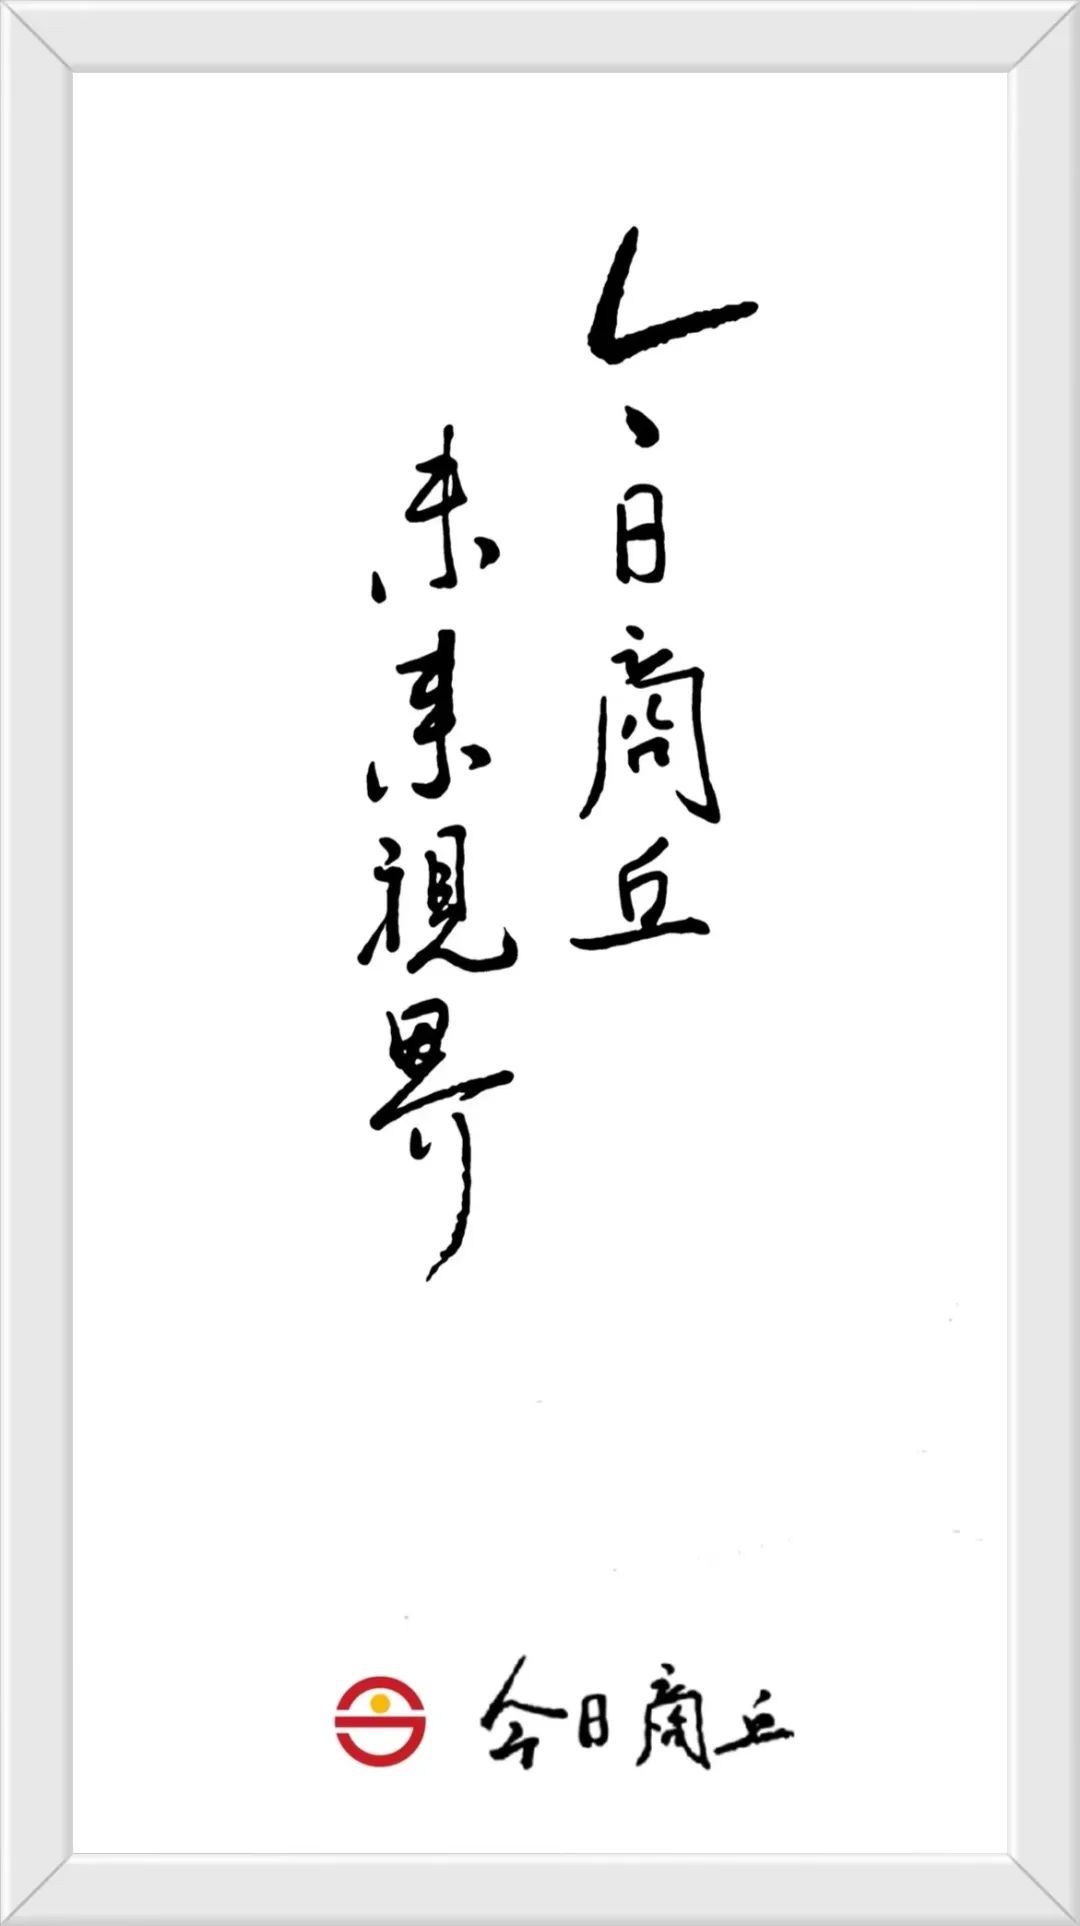 今日商丘
未来視界
今日商丘